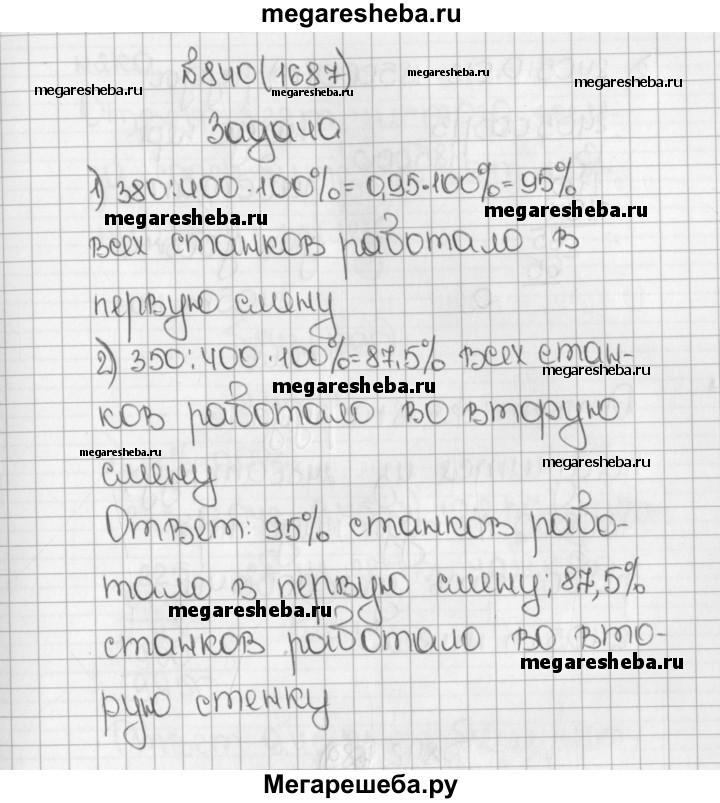 megaresheba.ru
№840(1687)
megaresheba.ru
megaresheba.ru
megaresheba.ru
megaresheba.ru
Задача
1) 380:400·100%=0,95·100%=95%
megaresheba.ru
megaresheba.ru
всех станков работало в
первую смену
2) 350:400·100%=87,5% всех стан-
megaresheba.ru
megaresheba.ru
ков работало во вторую
megaresheba.ru
megaresheba.ru
смену
Ответ: 95% станков рабо-
тало в первую смену; 87,5%
megaresheba.ru
станков работало во вто-
megaresheba.ru
рую стенку
Мегарешеба.ру